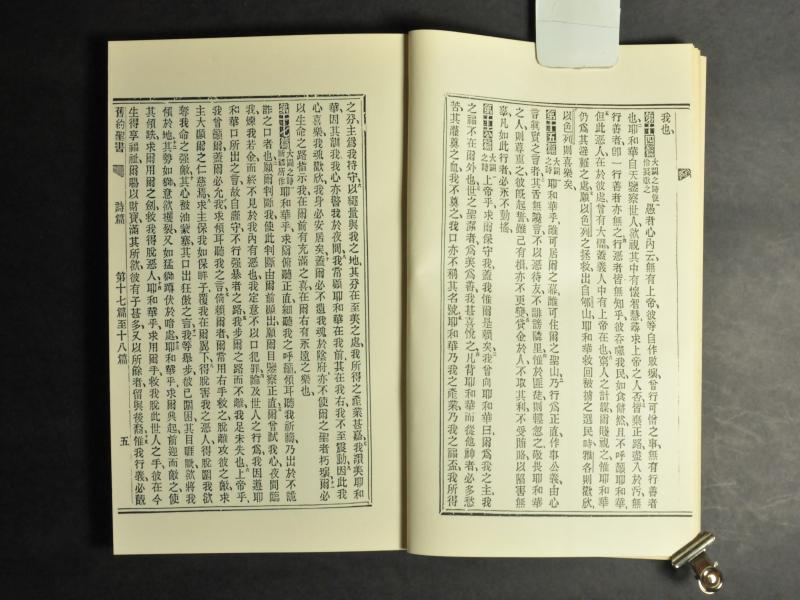 我也
第十四篇 大闢之詩使伶長歌之 愚者心內云無有上帝彼等自作敗壞曾行可憎之事無有行善者
也耶和華自天鑒察世人欲視其中有懷智慧尋求上帝之人否皆棄正路盡入於污無
行善者卽一行善者亦無之行惡者皆無知乎彼吞噬我民如食餅然且不呼籲耶和華
但此惡人在於彼處曾有大懼蓋義人中有上帝在也窮人之計謀爾賤視之惟耶和華
仍爲其避難之處願以色列之拯救出自郇山耶和華救回被擄之選民時雅各則歡欣
以色列則喜樂矣
第十五篇 大闢之詩 耶和華乎誰可居爾之幕誰可住爾之聖山乃行爲正直作事公義由心
言眞實之言者其舌無讒言不以惡待友不誹謗隣里惟於匪類則輕忽之敬畏耶和華
之人則尊重之彼既起誓雖己有損亦不更變貸金於人不取其利不受賄賂以陷害無
辜凡如此行者必永不動搖
第十六篇 大闢之詩 上帝乎求爾保守我蓋我惟爾是賴矣我曾向耶和華曰爾爲我之主我
之福不在爾外也世之聖潔者爲美爲善我甚喜悅之凡背耶和華而從他神者必多愁
苦其灌奠之血我不奠之我口亦不稱其名號耶和華乃我之產業乃我之福盃我所得
之分主爲我持守以繩量與我之地其分在至美之處我所得之產業甚嘉我讚美耶和
華因其訓我我心亦警我於夜間我常顧耶和華在我前其在我右我不至震動因此我
心喜樂我魂歡欣我身必安居矣蓋爾必不遺我魂於陰府亦不使爾之聖者朽壞爾必
以生命之路指示我在爾前有充滿之喜在爾右有永遠之樂也
第十七篇 大闢之時所作 耶和華乎求爾俯聽正直細聽我之呼籲傾耳聽我祈禱乃出於不詭
詐之口者也願爾判斷我使此判斷由爾前顯出願爾目鑒察正直爾曾試我心夜間臨
我煉我若金而終不見於我內有惡也我定意不以口犯罪論及世人之行爲我因遵耶
和華口所出之言故自謹守不行强暴者之路我步爾之路而不離我足未失也上帝乎
我曾籲爾蓋爾必允我求傾耳聽我之言倚賴爾者爾常用右手救之脫離攻彼之敵求
主大顯爾之仁慈焉求主保我如保眸子覆我在爾翼下得脫害我之惡人得脫圍我欲
奪我命之强敵其心被油蒙塞其口出狂傲之言我等舉步彼已圍困其目睚眦欲將我
傾於地其勢如獅意欲攫裂又如猛獅蹲伏於暗處耶和華乎求爾興起前迎而敵之使
其傾跌求爾用爾之劍救我得脫惡人耶和華乎求用爾手救我脫此世人之手彼在今
生得享福祉爾賜以財寶滿其所欲彼有子甚多又以所餘者留與後裔惟我行義必覩
舊約聖書 詩篇 第十七篇至十八篇 五